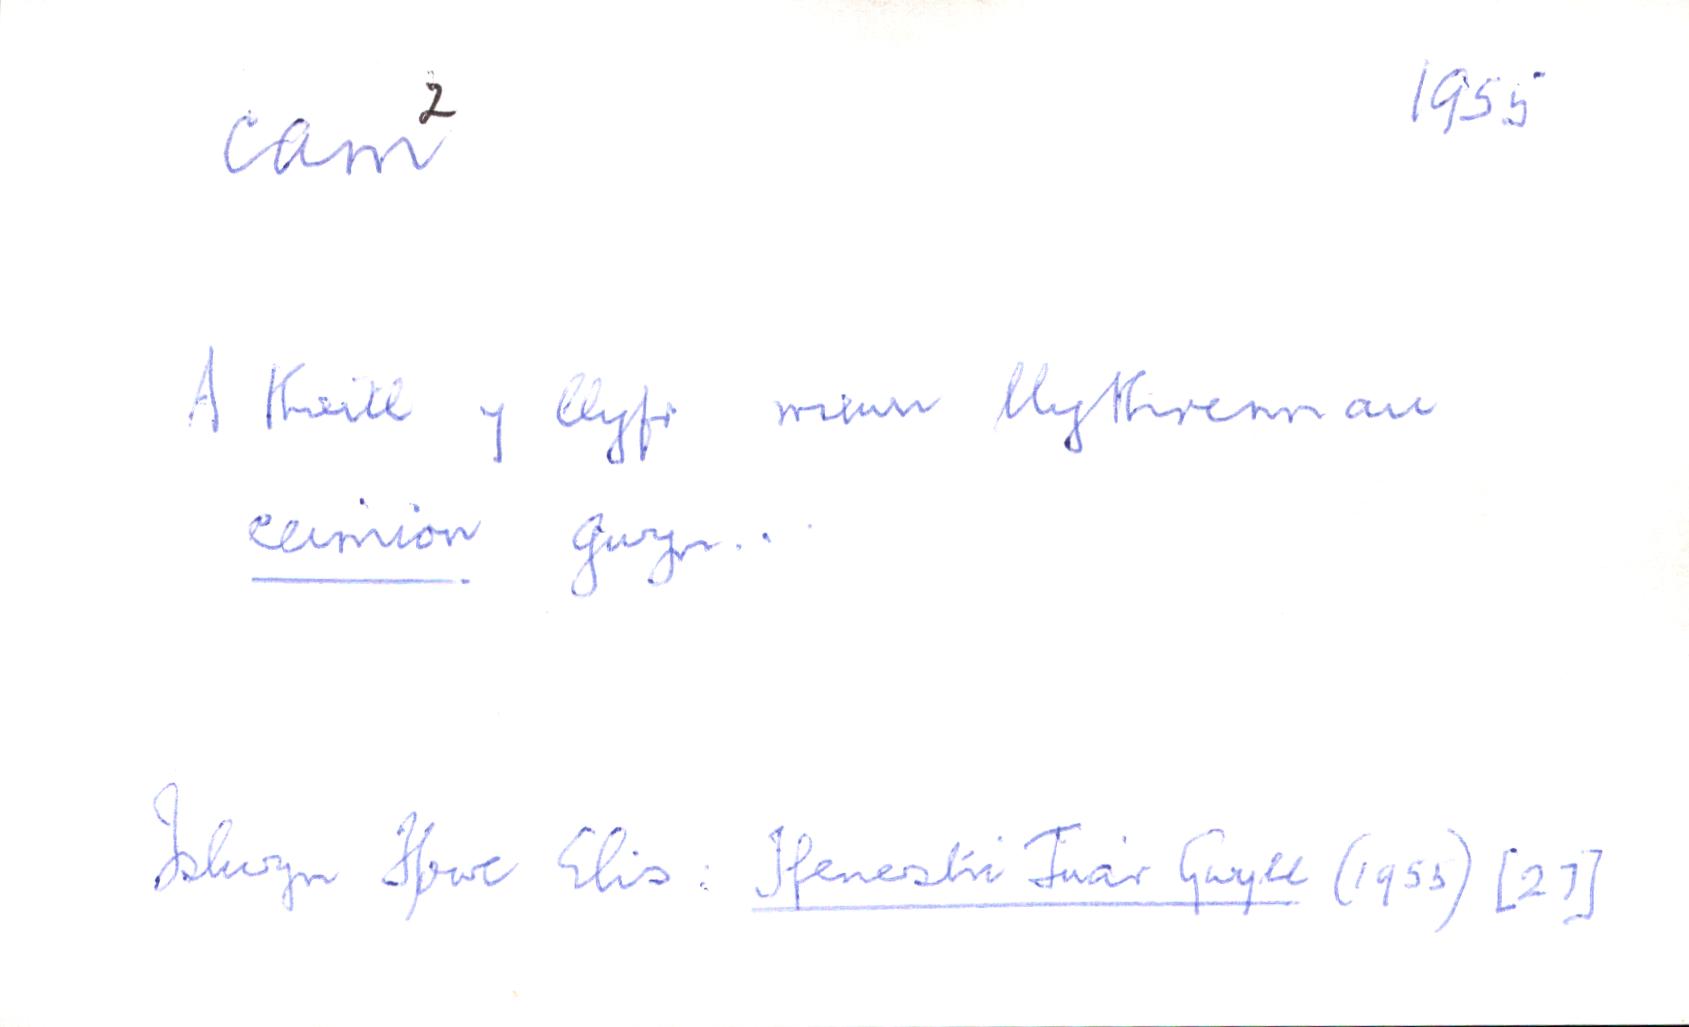 cam²
1955
A theitl y llyfr mewn llythrennau
ceimion gwyn...
Islwyn Ffowc Elis: Ffenestri Tua'r Gwyll (1955) [27]